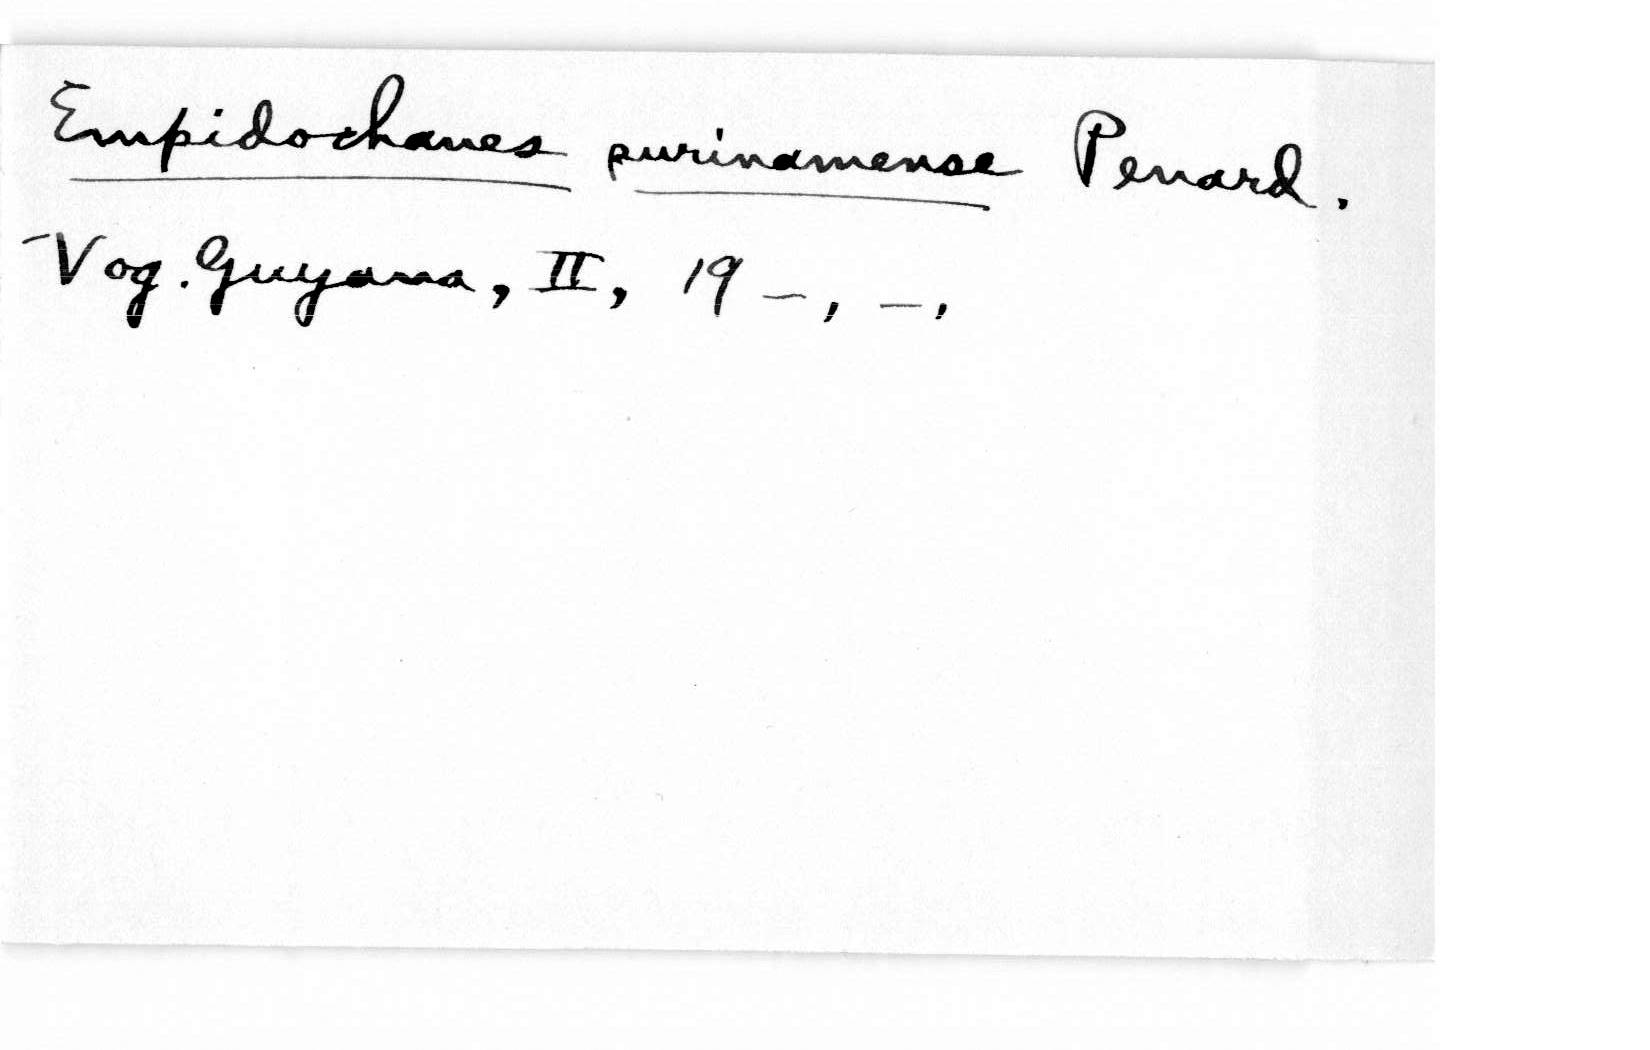 Empidochanes surinamense Penard.
Vog. Guyana, II, 19 –, –,